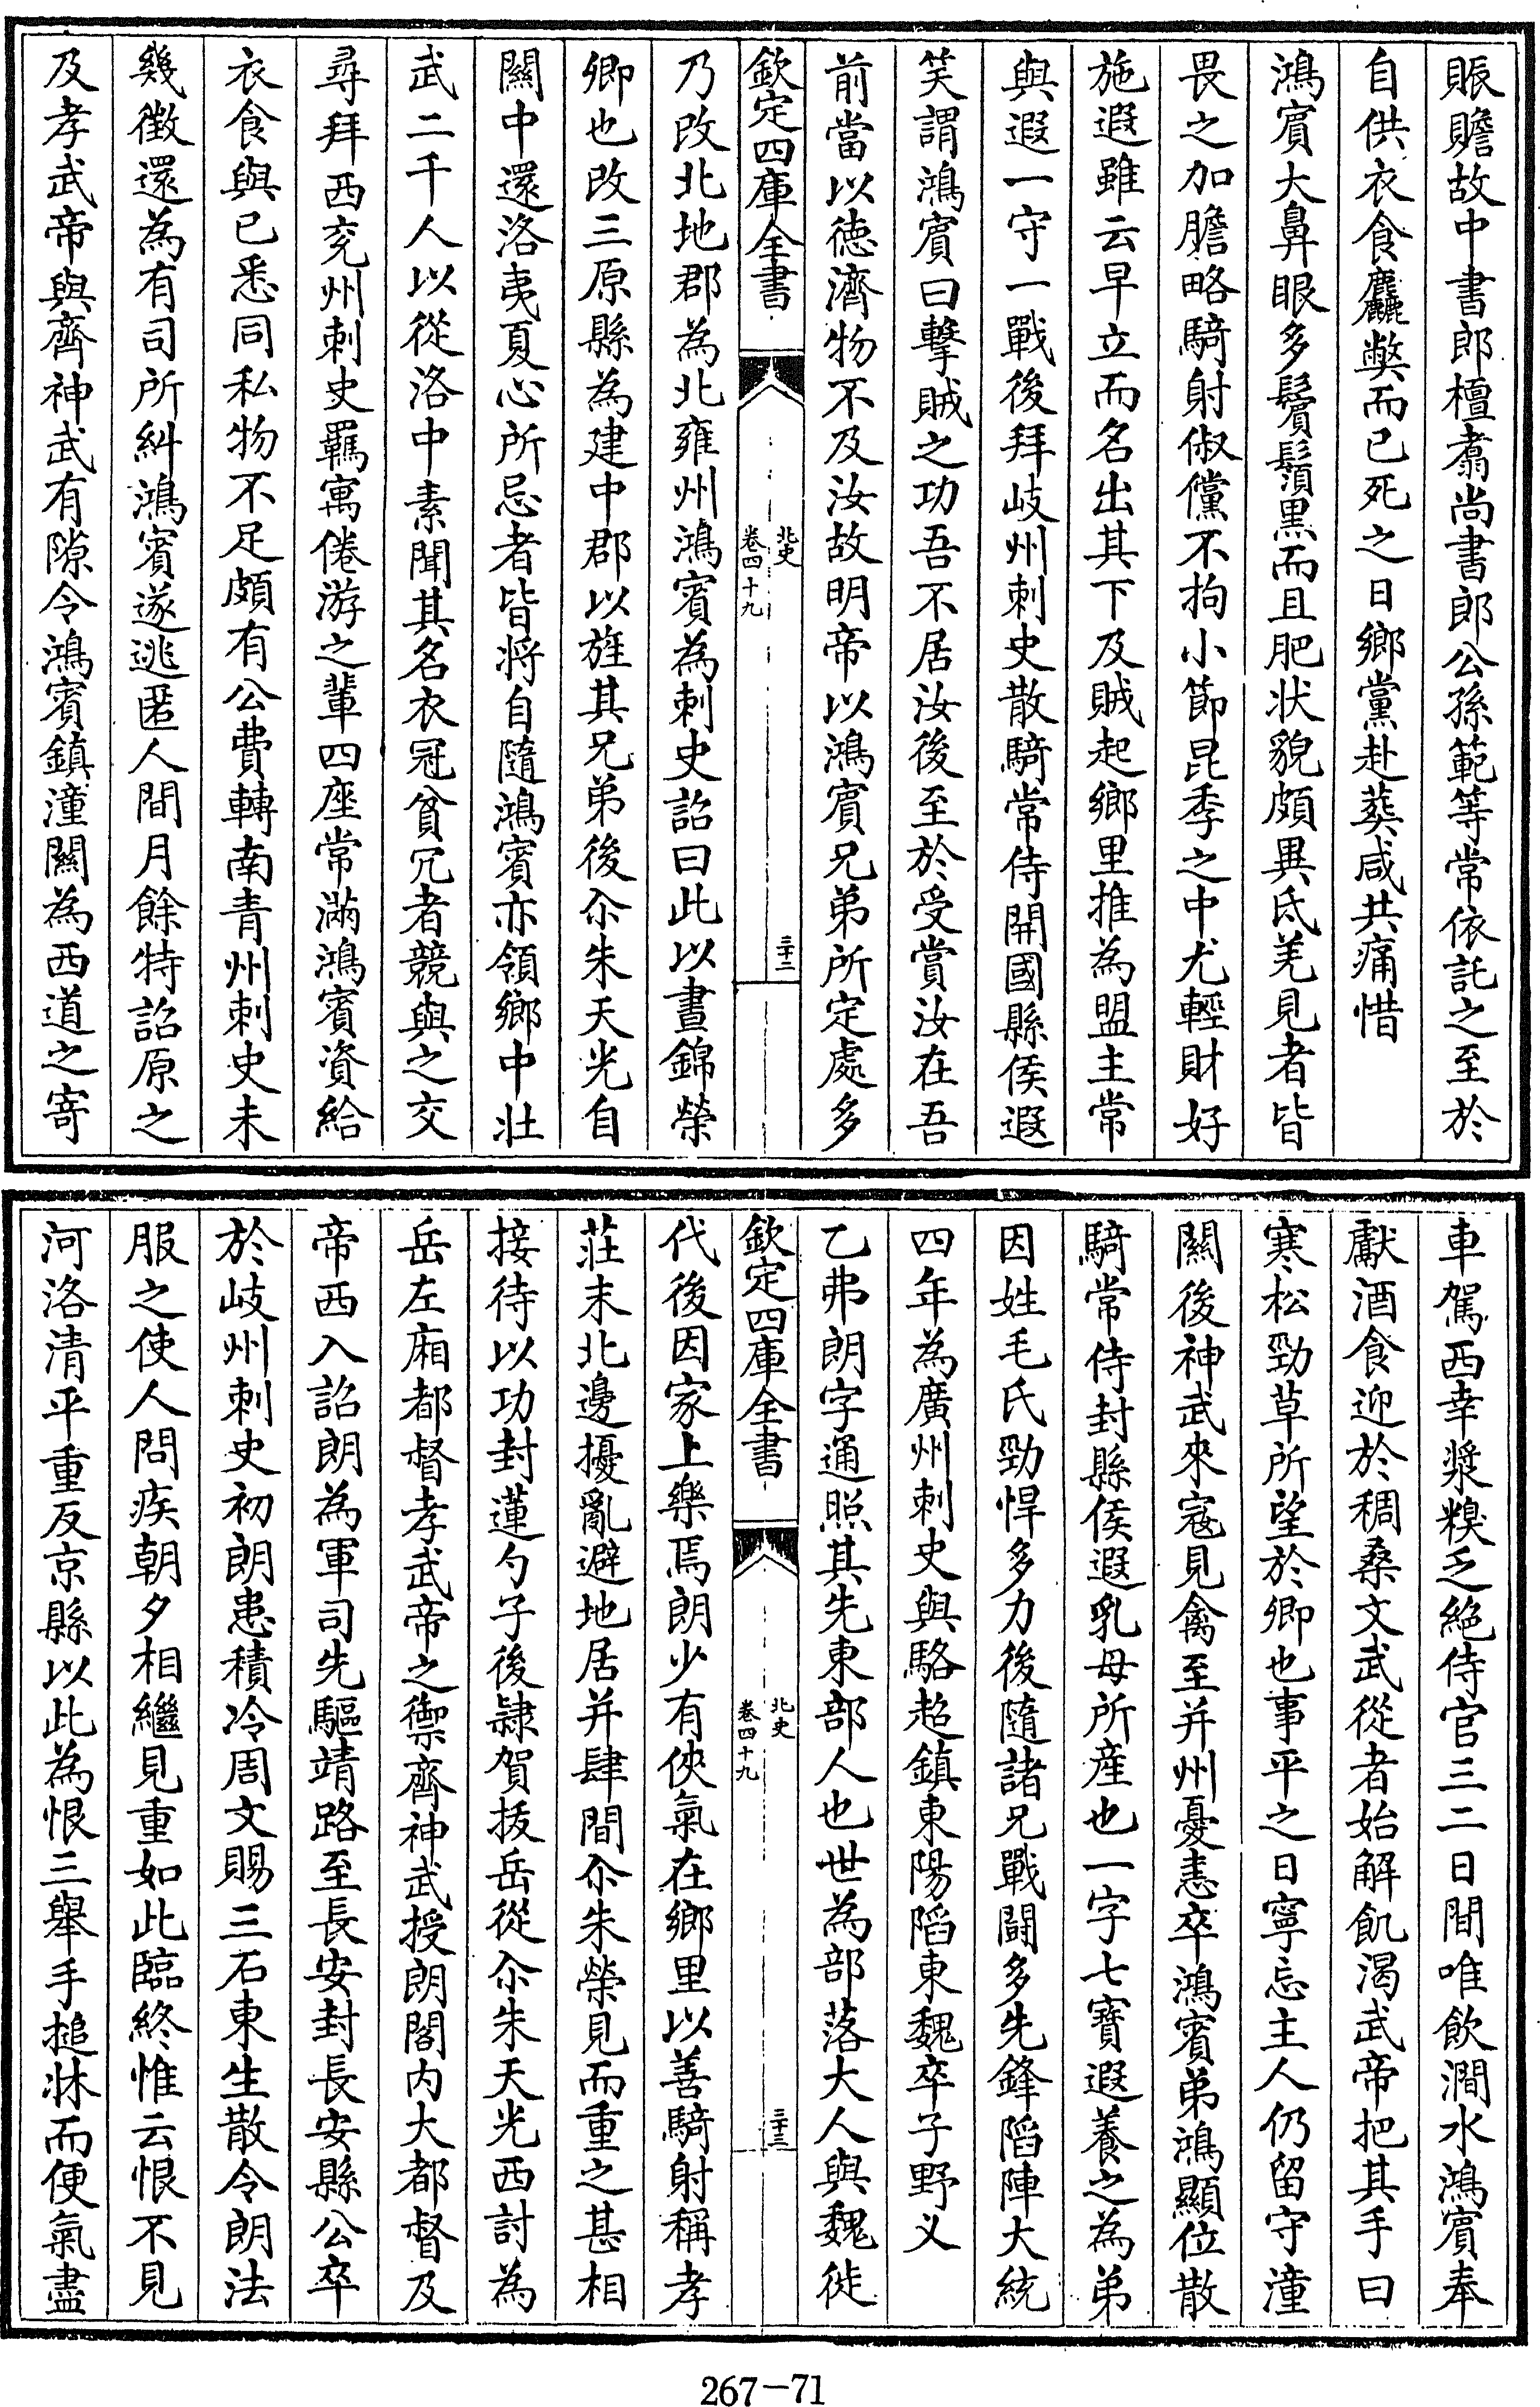 賑贍故中書郎檀翥尚書郎公孫範等常依託之至於
自供衣食麤弊而已死之日鄉黨赴葬咸共痛惜
鴻賓大鼻眼多鬢鬚黒而且肥狀貌頗異氐羌見者皆
畏之加膽略騎射俶儻不拘小節昆季之中尤輕財好
施遐雖云早立而名出其下及賊起鄉里推為盟主常
與遐一守一戰後拜岐州刺史散騎常侍開國縣侯遐
笑謂鴻賓曰擊賊之功吾不居汝後至於受賞汝在吾
前當以德濟物不及汝故明帝以鴻賓兄弟所定處多
欽定四庫全書
北史
卷四十九
三十二
乃改北地郡為北雍州鴻賓為刺史詔曰此以晝錦榮
卿也改三原縣為建中郡以旌其兄弟後尒朱天光自
關中還洛夷夏心所忌者皆將自隨鴻賓亦領鄉中壯
武二千人以從洛中素聞其名衣冠貧冗者競與之交
尋拜西兖州刺史羈寓倦游之輩四座常滿鴻賓資給
衣食與已悉同私物不足頗有公費轉南青州刺史未
幾徵還為有司所糾鴻賓遂逃匿人間月餘特詔原之
及孝武帝與齊神武有隙令鴻賓鎮潼關為西道之寄
車駕西幸漿糗乏絕侍官三二日間唯飲澗水鴻賓奉
獻酒食迎於稠桑文武從者始解飢渴武帝把其手曰
寒松勁草所望於卿也事平之日寧忘主人仍留守潼
關後神武來寇見禽至并州憂恚卒鴻賓弟鴻顯位散
騎常侍封縣侯遐乳母所産也一字七寶遐養之為弟
因姓毛氏勁悍多力後隨諸兄戰鬬多先鋒䧟陣大統
四年為廣州刺史與駱超鎮東陽䧟東魏卒子野义
乙弗朗字通照其先東部人也世為部落大人與魏徙
欽定四庫全書
北史
卷四十九
三十三
代後因家上樂焉朗少有俠氣在鄉里以善騎射稱孝
莊末北邊擾亂避地居并肆間尒朱榮見而重之甚相
接待以功封蓮勺子後隸賀拔岳從尒朱天光西討為
岳左廂都督孝武帝之禦齊神武授朗閤内大都督及
帝西入詔朗為軍司先驅靖路至長安封長安縣公卒
於岐州刺史初朗患積冷周文賜三石東生散令朗法
服之使人問疾朝夕相繼見重如此臨終惟云恨不見
河洛清平重反京縣以此為恨三舉手搥牀而便氣盡
267-71